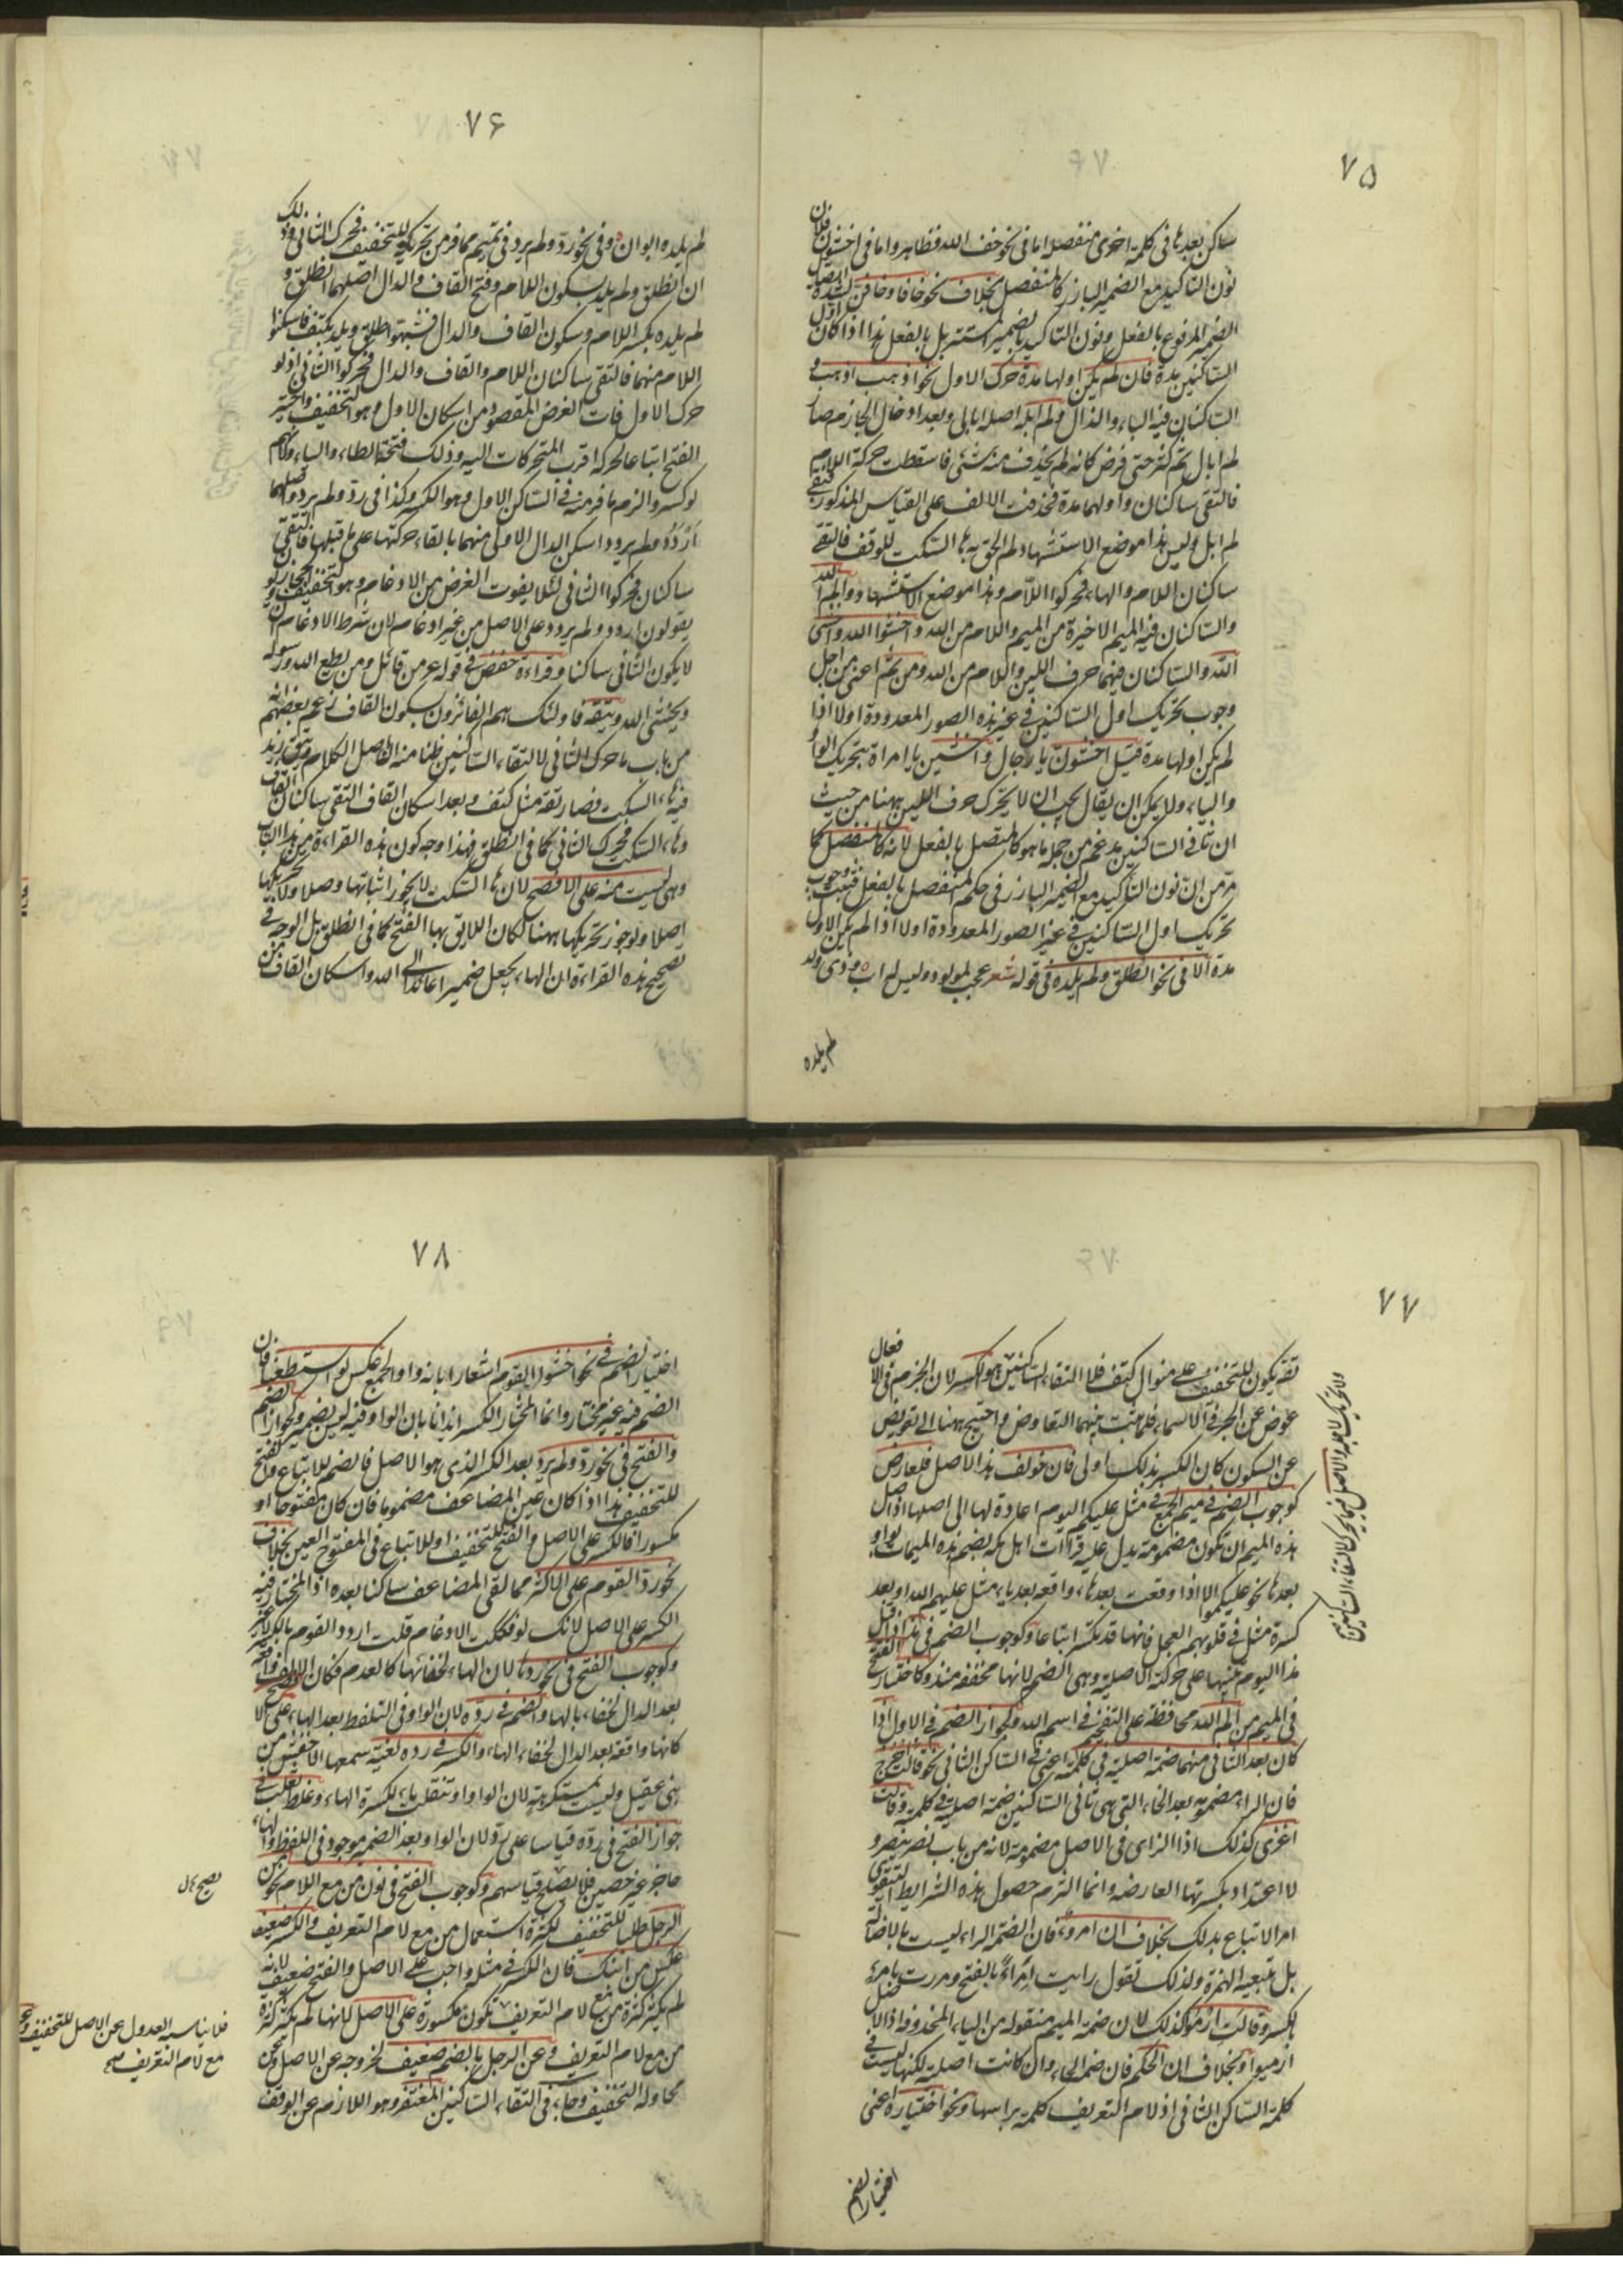 ٧۵
ساكن بعدها فى كلمة اخرى منفصلة اما فى نحو خف الله فظاهر واما فى اخشون فلان
نون التاكيد مع الضمير البارز كالمنفصل بخلاف نحو خافا وخافن لشدة اتصال
الضمير المرفوع بالفعل ونون التاكيد بضمير استتر بل بالفعل هذا اذا كان اول
الساكنين مدة فان لم يكن اولهما مدة حرك الاول نحو اذهب اذهب و
الساكنان فيه الباء والذال ولم ابله اصله ابالى وبعد ادخال الجازم صار
لم ابال ثم كثر حتى فرض كانه لم يحذف منه شئ فاسقطت حركة اللام
فالتقى ساكنان واولهما مدة فحذفت الالف على القياس المذكور فبقى
لم ابل وليس هذا موضع الاستشهاد ولم الحق به هاء السكت للوقف فالتقى
ساكنان اللام والهاء فحركوا اللام وهذا موضع الاستشهاد والم الله
والساكنان فيه الميم الاخيرة من الميم واللام من الله واخشوا الله واخشى
الله والساكنان فيهما حرف اللين واللام من الله ومن ثم اعنى من اجل
وجوب تحريك اول الساكنين فى غير هذه الصور المعدودة اولا اذا
لم يكن اولهما مدة قيل اخشون يا رجال واخشين يا امراة بتحريك الواو
والياء ولا يمكن ان يقال يجب ان لا يحرك حرف اللين ههنا من حيث
ان ثانى الساكنين مدغم من جملة ما هو كالمتصل بالفعل لانه كالمنفصل كما
مر من ان نون التاكيد مع الضمير البارز فى حكم المنفصل بالفعل فثبت وجوب
تحريك اول الساكنين فى غير الصور المعدودة اولا اذا لم يكن الاول
مدة الا فى نحو انطلق ولم يلده فى قوله شعر عجبت لمولود وليس له اب وذى ولد
لم يلده
٧۶
لم يلده ابوان وفى نحو رد ولم يرد فى تميم مما فر من تحريكه للتخفيف فحرك الثانى وذلك
ان انطلق ولم يلد بسكون اللام وفتح القاف والدال اصلهما انطلق و
لم يلده بكسر اللام وسكون القاف والدال فشبهوا طلق ويلد بكتف فاسكنوا
اللام منهما فالتقى ساكنان اللام والقاف والدال فحركوا الثانى اذ لو
حرك الاول فات الغرض المقصود من اسكان الاول وهو التخفيف واختير
الفتح اتباعا لحركة اقرب المتحركات اليه وذلك فتحة الطاء والياء ولانهم
لو كسروا لزم ما فر منه فى الساكن الاول وهو الكسر وكذا فى رد ولم يرد واصلهما
اردد ولم يردد اسكن الدال الاولى منهما بالقاء حركتها على ما قبلها فالتقى
ساكنان فحركوا الثانى لئلا يفوت الغرض من الادغام وهو التخفيف والحجازيون
يقولون اردد ولم يردد على الاصل من غير ادغام لان شرط الادغام ان
لا يكون الثانى ساكنا وقراءة حفص فى قوله عز من قائل ومن يطع الله ورسوله
ويخشى الله ويتقه فاولئك هم الفائزون بسكون القاف زعم بعضهم انه
من باب ما حرك الثانى لالتقاء الساكنين ظنا منه ان اصل الكلام ويتق زيد
فيه هاء السكت فصار تقه مثل كتف وبعد اسكان القاف التقى ساكنان القاف
وهاء السكت فحرك الثانى كما فى انطلق فهذا وجه كون هذه القراءة من هذا الباب
وهى ليست منه على الافصح لان هاء السكت لا يجوز اثباتها وصلا ولا تحريكها
اصلا ولو جوز تحريكها ههنا لكان اللايق بها الفتح كما فى انطلق بل الوجه فى
تصحيح هذه القراءة ان الهاء يجعل ضميرا عائدا الى الله واسكان القاف من
٧٧
تقه يكون للتخفيف على منوال كتف فلا التقاء الساكنين هو الكسر لان الجزم فى الافعال
عوض عن الجر فى الاسماء فلما ثبت بينهما التعاوض واحتيج ههنا الى تعويض
عن السكون كان الكسر بذلك اولى فان خولف هذا الاصل فلعارض
كوجوب الضم فى ميم الجمع فى مثل عليكم اليوم اعادة لها الى اصلها اذ اصل
هذه الميم ان تكون مضمومة يدل عليه قراات اهل مكة بضم هذه الميمات بواو
بعدها نحو عليكموا الا اذا وقعت بعد هاء واقعة بعد ياء مثل عليهم الله او بعد
كسرة مثل فى قلوبهم العجل فانها قد تكسر اتباعا وكوجوب الضم فى مذ اذا قيل
مذ اليوم تنبيها على حركته الاصلية وهى الضم لانها مخففة منذ وكاختيار الفتح
فى الميم من الم الله محافظة على التفخيم فى اسم الله وكجواز الضم فى الاول اذا
كان بعد الثانى منهما ضمة اصلية فى كلمته اعنى فى الساكن الثانى نحو قالت اخرج
فان الراء مضمومة بعد الخاء التى هى ثانى الساكنين ضمة اصلية فى كلمته وقالت
اغزى كذلك اذ الزاى فى الاصل مضمومة لانه من باب نصر ينصر و
لا اعتداد بكسرتها العارضة وانما التزم حصول هذه الشرايط ليتقوى
امر الاتباع بذلك بخلاف ان امرؤ فان ضمة الراء ليست بالاصالة
بل بتبعية الهمزة ولذلك تقول رايت امرأ بالفتح ومررت بامرئ
بالكسر وقالت ارموا كذلك لان ضمة الميم منقولة من الياء المحذوفة اذ الاصل
ارميوا وبخلاف ان الحكم فان ضمة الحاء وان كانت اصلية لكنها ليست فى
كلمة الساكن الثانى اذ لام التعريف كلمة براسها ونحو اختياره اعنى
اختيار الضم
٧٨
اختيار الضم فى نحو اخشوا القوم اشعارا بانه واو الجمع عكس لو استطعنا فان
الضم فيه غير مختار وانما المختار الكسر ايذانا بان الواو فيه ليس بضمير وكجواز الضم
والفتح فى نحو رد ولم يرد بعد الكسر الذى هو الاصل فالضم للاتباع والفتح
للتخفيف هذا اذا كان عين المضاعف مضموما فان كان مفتوحا او
مكسورا فالكسر على الاصل والفتح للتخفيف او للاتباع فى المفتوح العين بخلاف
نحو رد القوم على الاكثر مما لقى المضاعف ساكنا بعده اذ المختار فيه
الكسر على الاصل لانك لو فككت الادغام قلت اردد القوم بالكسر
وكوجوب الفتح فى نحو ردها لان الهاء لخفائها كالعدم فكان الالف واقعة
بعد الدال لخفاء الهاء والضم فى رده لان الواو فى التلفظ بعد الهاء على
كانها واقعة بعد الدال لخفاء الهاء والكسر فى رده لغية سمعها الاخفش من
بنى عقيل وليست بمستكرهة لان الواو تنقلب ياء لكسرة الهاء وغلط ثعلب فى
جواز الفتح فى رده قياسا على رد لان الواو بعد الضمير موجود فى اللفظ والهاء
حاجز غير حصين فلا يصلح قياسهم وكوجوب الفتح فى نون من مع اللام نحو من
الرجل طلبا للتخفيف لكثرة استعمال من مع لام التعريف والكسر ضعيف
عكس من ابنك فان الكسر فى مثله واجب على الاصل والفتح ضعيف لانه
لم يكثر كثرة من مع لام التعريف وعن تكون مكسورة على الاصل لانها لم يكثر كثرة
من مع لام التعريف وعن الرجل بالضم ضعيف لخروجه عن الاصل وعن
محاولة التخفيف وجاء فى التقاء الساكنين المغتفر وهو اللازم عن الوقف
فلا يناسبه العدول عن الاصل للتخفيف
مع لام التعريف صح